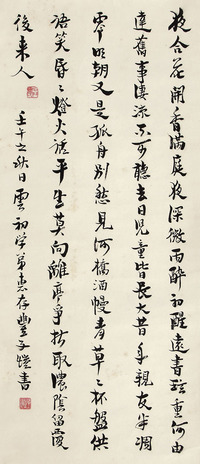 夜合花開香滿庭夜深微雨醉初醒遠書珍重何由
達舊事淒涼不可聽去日兒童皆長大昔年親友半凋
零明朝又是孤舟別愁見河橋酒幔青草々杯盤供
語笑昏々燈火話平生莫向離亭爭折取濃陰留覆
後來人 壬午之秋日雲初學弟惠存豐子愷書